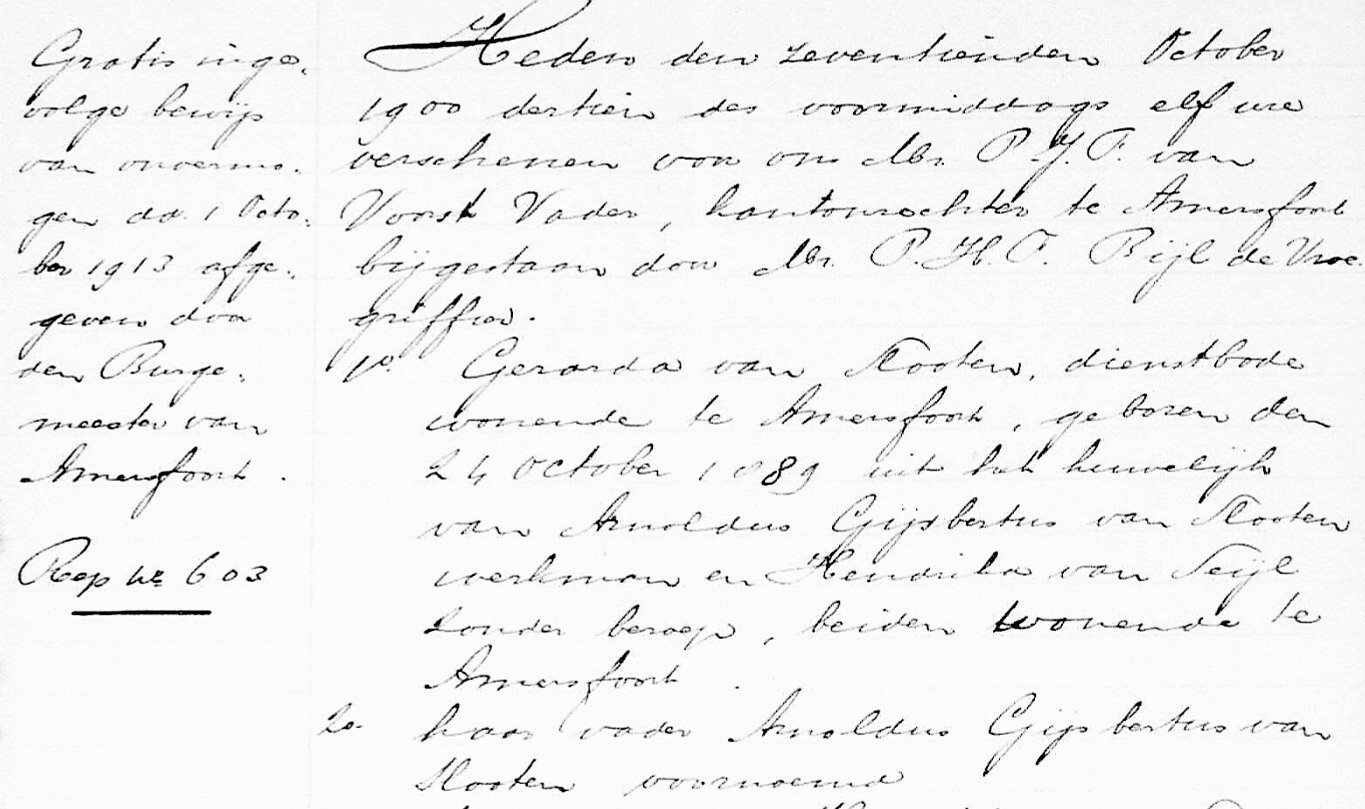 Gratis inge-
volge bewijs
van onvermo-
gen dd. 1 Octo-
ber 1913 afge-
geven door
den Burge-
meester van
Amersfoort.
Rep nr 603
Heden den zeventienden October
1900 dertien des voormiddags elf ure
verschenen voor ons Mr. P.J.F. van
Voorst Vader, kantonrechter te Amersfoort
bijgestaan door Mr. P.H.F. Bijl de Vroe
griffier.
1o. Gerarda van Slooten, dienstbode
wonende te Amersfoort, geboren den
24 October 1889 uit het huwelijk
van Arnoldus Gijsbertus van Slooten
werkman en Hendrika van
zonder beroep, beiden wonende te
Amersfoort.
2o. haar vader Arnoldus Gijsbertus van
Slooten voornoemd